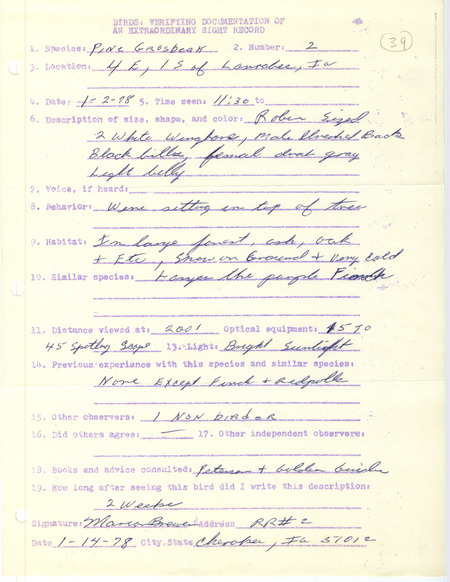 BIRDS: VERIFYING DOCUMENTATION OF
AN EXTRAORDINARY SIGHT RECORD
39
1. Species: Pine Grosbeak 2. Number: 2
3. Location: 4 E, 1 S of Larrabee, Ia
4. Date: 1-2-78 5. Time seen: 11:30 to
6. Description of size, shape, and color: Robin Sized
2 White Wingbars, Male Back
Black billes, femal drab gray
Light belly
7. Voice, if heard:
8. Behavior: Were sitting on top of tree
9. Habitat: In large forest, ash, oak
+ Etc, Snow on Ground + Very Cold
10. Similar species: Larger the purple Finch
11. Distance viewed at: 200' Optical equipment: 15 TO
45 Spotting Scope 13. Light: Bright Sunlight
14. Previous experience with this species and similar species:
None Except Finch + Redpolls
15. Other observers: 1 NON birder
16. Did others agree: — 17. Other independent observers:
18. Books and advice consulted: Peterson + Golden Guide
19. How long after seeing this bird did I write this description:
2 Weeks
Signature: Address RR# 2
Date 1-14-78 City, State Cherokee, Ia 51012